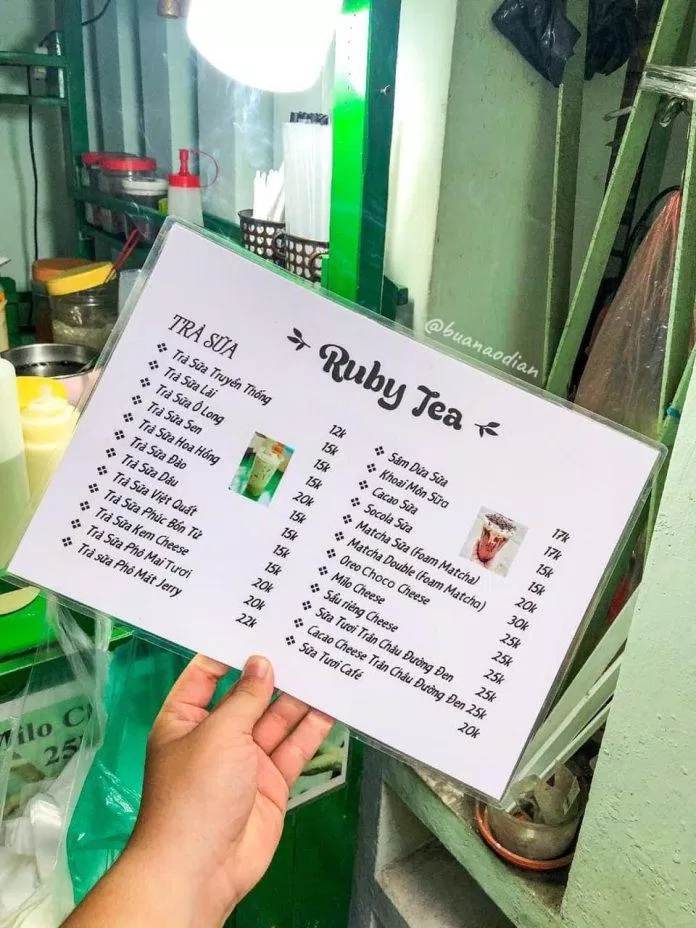 @buanaodian
Ruby Tea
TRÀ SỮA
Trà Sữa Truyền Thống 12k
Trà Sữa Lài 15k
Trà Sữa Ô Long 15k
Trà Sữa Sen 15k
Trà Sữa Hoa Hồng 20k
Trà Sữa Đào 15k
Trà Sữa Dâu 15k
Trà Sữa Việt Quất 15k
Trà Sữa Phúc Bồn Tử 15k
Trà Sữa Kem Cheese 20k
Trà Sữa Phô Mai Tươi 20k
Trà Sữa Phô Mất Jerry 22k
Sâm Dứa Sữa 17k
Khoai Môn Sữa 17k
Cacao Sữa 15k
Socola Sữa 15k
Matcha Sữa (Foam Matcha) 20k
Matcha Double (Foam Matcha) 30k
Oreo Choco Cheese 25k
Milo Cheese 25k
Sầu riêng Cheese 25k
Sữa Tươi Trân Châu Đường Đen 25k
Cacao Cheese Trân Châu Đường Đen 25k
Sữa Tươi Café 20k
Milo C
25